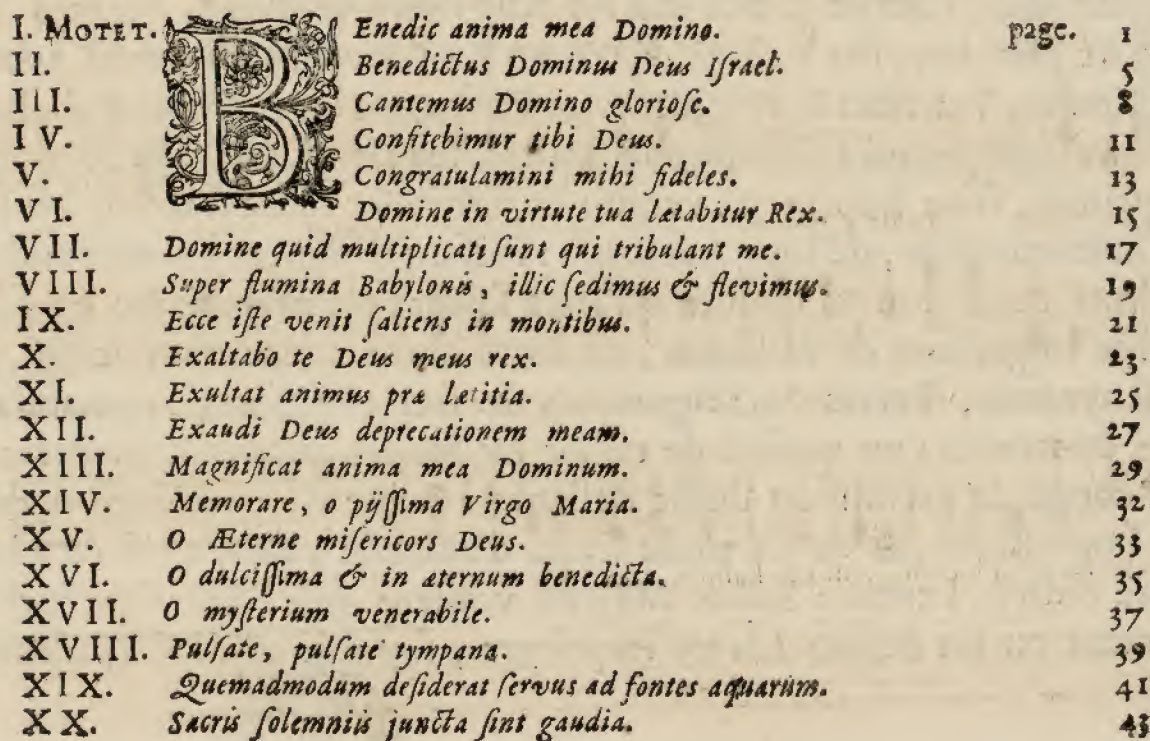 I. MOTET. BEnedic anima mea Domino. page. 1
II. Benedictus Dominus Deus Iſrael. 5
III. Cantemus Domino glorioſe. 8
IV. Confitebimur tibi Deus. 11
V. Congratulamini mihi fideles. 13
VI. Domine in virtute tua lætabitur Rex. 15
VII. Domine quid multiplicati ſunt qui tribulant me. 17
VIII. Super flumina Babylonis, illic ſedimus & flevimus. 19
IX. Ecce iſte venit ſaliens in montibus. 21
X. Exaltabo te Deus meus rex. 23
XI. Exultat animus præ lætitia. 25
XII. Exaudi Deus deprecationem meam. 27
XIII. Magnificat anima mea Dominum. 29
XIV. Memorare, o pijſſima Virgo Maria. 32
XV. O Æterne miſericors Deus. 33
XVI. O dulciſſima & in æternum benedicta. 35
XVII. O myſterium venerabile. 37
XVIII. Pulſate, pulſate tympana. 39
XIX. Quemadmodum deſiderat ſervus ad fontes aquarum. 41
XX. Sacris ſolemniis juncta ſint gaudia. 43